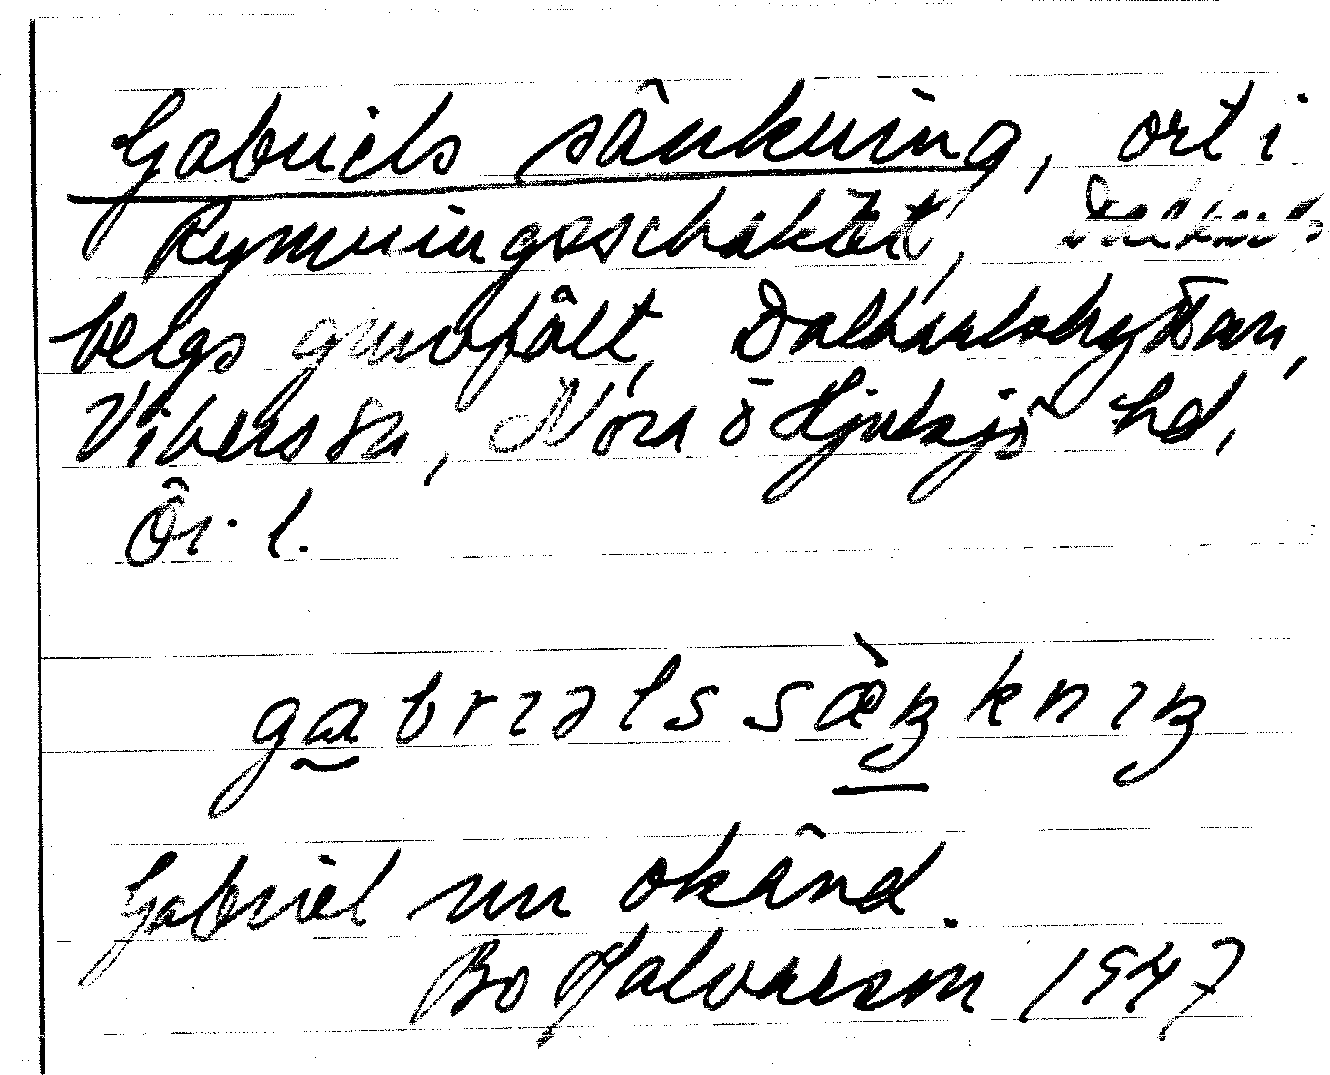 Gabriels sänkning, ort i
Rymningsschaktet,
bergs gruvfält, Dalkarlshyttan,
Vikers sn, Nora o Hjulsjö hd,
Ör. l.
gabrıəlssæ̀ŋknıŋ
Gabriel nu okänd.
Bo Halvarson 1947